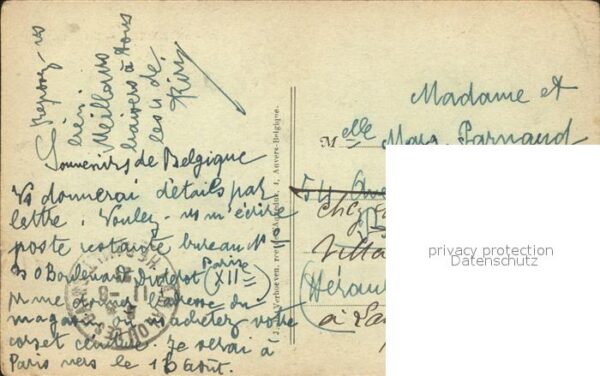 Reposez vs
bien.
Meilleurs
baisers à tous
les u de.
Souvenirs de Belgique
Vs donnerai détails par
lettre. Voulez-vs m'écrire
poste restante bureau N°
30 Boulevard Diderot (Paris XII)
pr me donner l'adresse du
magasin où vs achetez votre
corset ceinture. Je serai à
Paris vers le 16 Août.
Anvers-Belgique.
Madame et
Melle Parnaud
54 Ave
chez
Villa
(Hérault
à La
privacy protection
Datenschutz